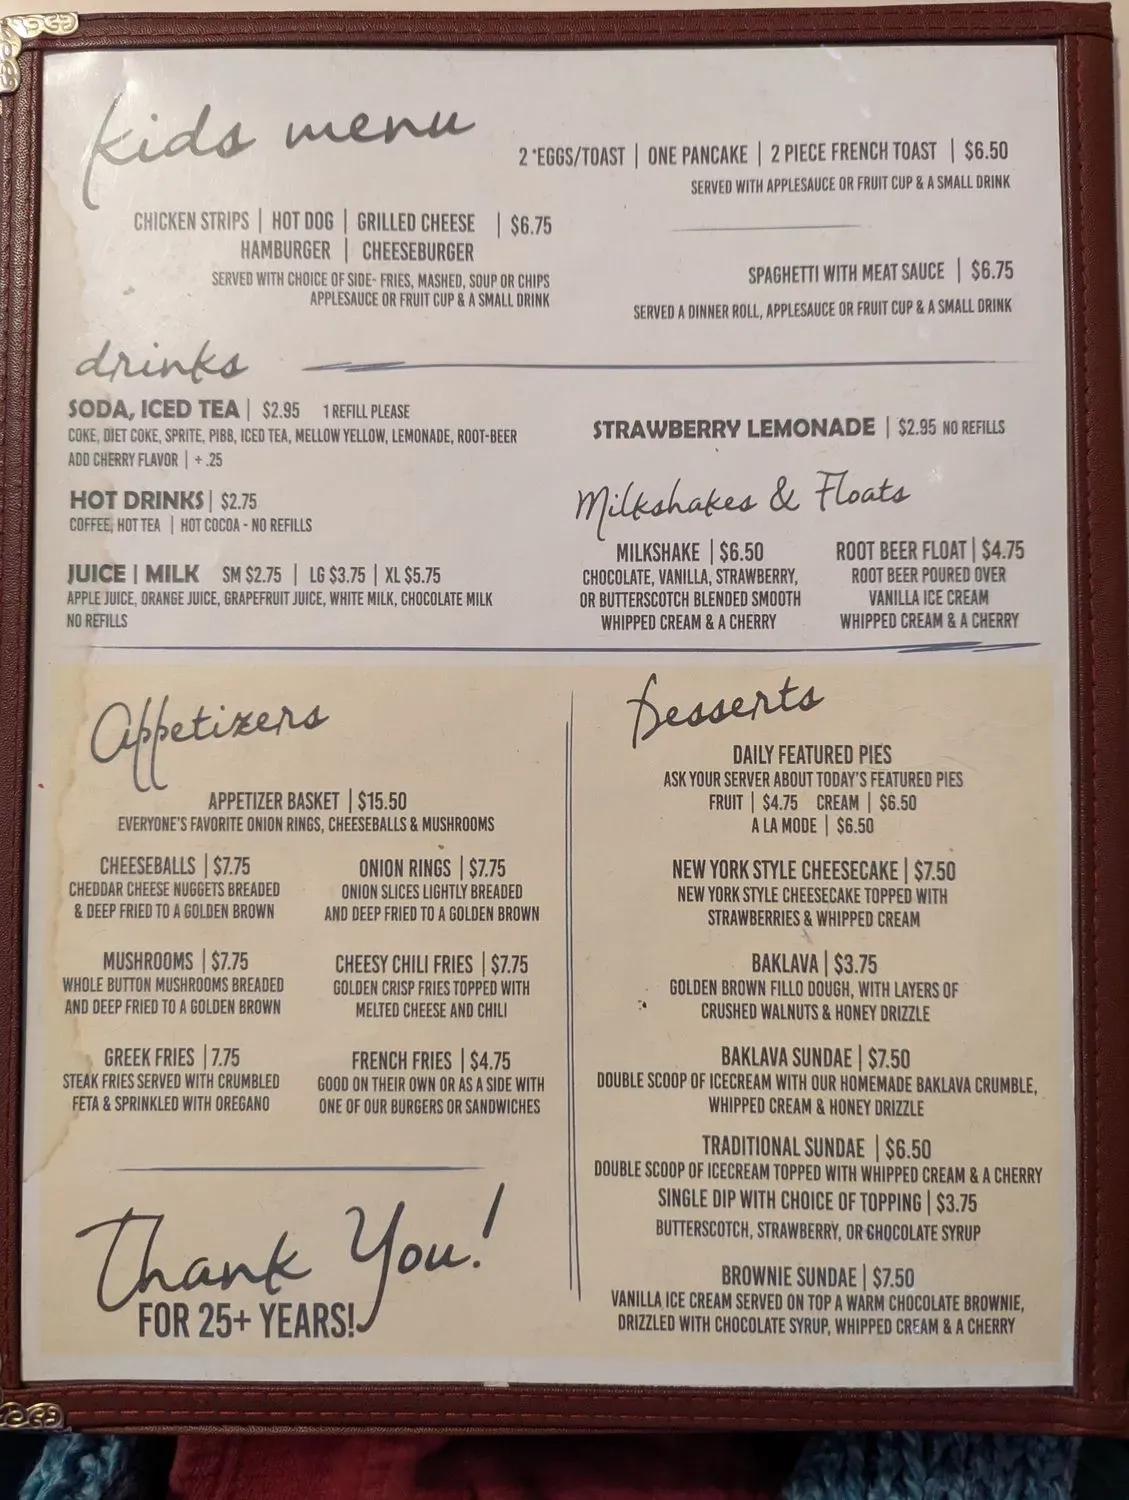 kids menu
2 *EGGS/TOAST | ONE PANCAKE | 2 PIECE FRENCH TOAST | $6.50
SERVED WITH APPLESAUCE OR FRUIT CUP & A SMALL DRINK
CHICKEN STRIPS | HOT DOG | GRILLED CHEESE | $6.75
HAMBURGER | CHEESEBURGER
SERVED WITH CHOICE OF SIDE- FRIES, MASHED, SOUP OR CHIPS
APPLESAUCE OR FRUIT CUP & A SMALL DRINK
SPAGHETTI WITH MEAT SAUCE | $6.75
SERVED A DINNER ROLL, APPLESAUCE OR FRUIT CUP & A SMALL DRINK
drinks
SODA, ICED TEA | $2.95 1 REFILL PLEASE
COKE, DIET COKE, SPRITE, PIBB, ICED TEA, MELLOW YELLOW, LEMONADE, ROOT-BEER
ADD CHERRY FLAVOR | + .25
HOT DRINKS | $2.75
COFFEE, HOT TEA | HOT COCOA - NO REFILLS
JUICE | MILK SM $2.75 | LG $3.75 | XL $5.75
APPLE JUICE, ORANGE JUICE, GRAPEFRUIT JUICE, WHITE MILK, CHOCOLATE MILK
NO REFILLS
STRAWBERRY LEMONADE | $2.95 NO REFILLS
Milkshakes & Floats
MILKSHAKE | $6.50
CHOCOLATE, VANILLA, STRAWBERRY,
OR BUTTERSCOTCH BLENDED SMOOTH
WHIPPED CREAM & A CHERRY
ROOT BEER FLOAT | $4.75
ROOT BEER POURED OVER
VANILLA ICE CREAM
WHIPPED CREAM & A CHERRY
Appetizers
APPETIZER BASKET | $15.50
EVERYONE'S FAVORITE ONION RINGS, CHEESEBALLS & MUSHROOMS
CHEESEBALLS | $7.75
CHEDDAR CHEESE NUGGETS BREADED
& DEEP FRIED TO A GOLDEN BROWN
ONION RINGS | $7.75
ONION SLICES LIGHTLY BREADED
AND DEEP FRIED TO A GOLDEN BROWN
MUSHROOMS | $7.75
WHOLE BUTTON MUSHROOMS BREADED
AND DEEP FRIED TO A GOLDEN BROWN
CHEESY CHILI FRIES | $7.75
GOLDEN CRISP FRIES TOPPED WITH
MELTED CHEESE AND CHILI
GREEK FRIES | 7.75
STEAK FRIES SERVED WITH CRUMBLED
FETA & SPRINKLED WITH OREGANO
FRENCH FRIES | $4.75
GOOD ON THEIR OWN OR AS A SIDE WITH
ONE OF OUR BURGERS OR SANDWICHES
Thank You!
FOR 25+ YEARS!
Desserts
DAILY FEATURED PIES
ASK YOUR SERVER ABOUT TODAY'S FEATURED PIES
FRUIT | $4.75 CREAM | $6.50
A LA MODE | $6.50
NEW YORK STYLE CHEESECAKE | $7.50
NEW YORK STYLE CHEESECAKE TOPPED WITH
STRAWBERRIES & WHIPPED CREAM
BAKLAVA | $3.75
GOLDEN BROWN FILLO DOUGH, WITH LAYERS OF
CRUSHED WALNUTS & HONEY DRIZZLE
BAKLAVA SUNDAE | $7.50
DOUBLE SCOOP OF ICECREAM WITH OUR HOMEMADE BAKLAVA CRUMBLE,
WHIPPED CREAM & HONEY DRIZZLE
TRADITIONAL SUNDAE | $6.50
DOUBLE SCOOP OF ICECREAM TOPPED WITH WHIPPED CREAM & A CHERRY
SINGLE DIP WITH CHOICE OF TOPPING | $3.75
BUTTERSCOTCH, STRAWBERRY, OR CHOCOLATE SYRUP
BROWNIE SUNDAE | $7.50
VANILLA ICE CREAM SERVED ON TOP A WARM CHOCOLATE BROWNIE,
DRIZZLED WITH CHOCOLATE SYRUP, WHIPPED CREAM & A CHERRY